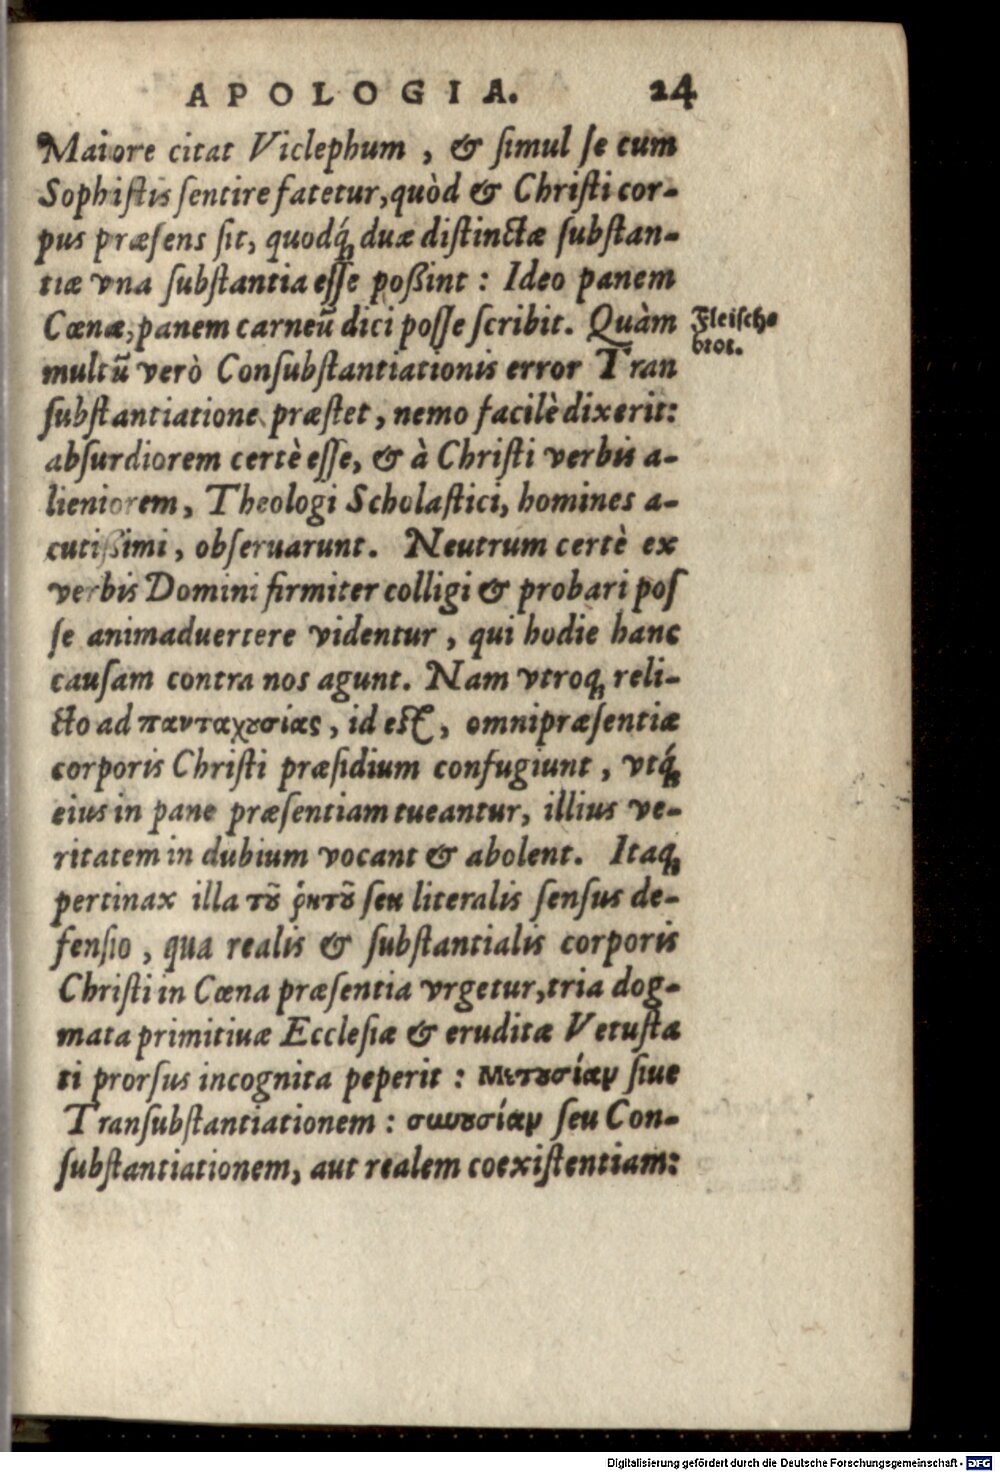 APOLOGIA. 24
Maiore citat Viclephum, & ſimul ſe cum
Sophiſtis ſentire fatetur, quòd & Chriſti cor-
pus præſens ſit, quodq́; duæ diſtinctæ ſubſtan-
tiæ vna ſubſtantia eſſe poßint : Ideo panem
Cœnæ, panem carneū dici poſſe ſcribit. Quàm
Fleiſch-
brot.
multū verò Conſubſtantiationis error Tran
ſubſtantiatione præſtet, nemo facilè dixerit:
abſurdiorem certè eſſe, & à Chriſti verbis a-
lieniorem, Theologi Scholaſtici, homines a-
cutißimi, obſeruarunt. Neutrum certè ex
verbis Domini firmiter colligi & probari poſ
ſe animaduertere videntur, qui hodie hanc
cauſam contra nos agunt. Nam vtroq; reli-
cto ad πανταχȣσίας, id eſt, omnipræſentiæ
corporis Chriſti præſidium confugiunt, vtq́;
eius in pane præſentiam tueantur, illius ve-
ritatem in dubium vocant & abolent. Itaq;
pertinax illa τȣ͂ ῥητȣ͂ ſeu literalis ſenſus de-
fenſio, qua realis & ſubſtantialis corporis
Chriſti in Cœna præſentia vrgetur, tria dog-
mata primitiuæ Eccleſiæ & eruditæ Vetuſta
ti prorſus incognita peperit : Μετȣσίαν ſiue
Tranſubſtantiationem : συνȣσίαν ſeu Con-
ſubſtantiationem, aut realem coexiſtentiam:
Digitalisierung gefördert durch die Deutsche Forschungsgemeinschaft - DFG